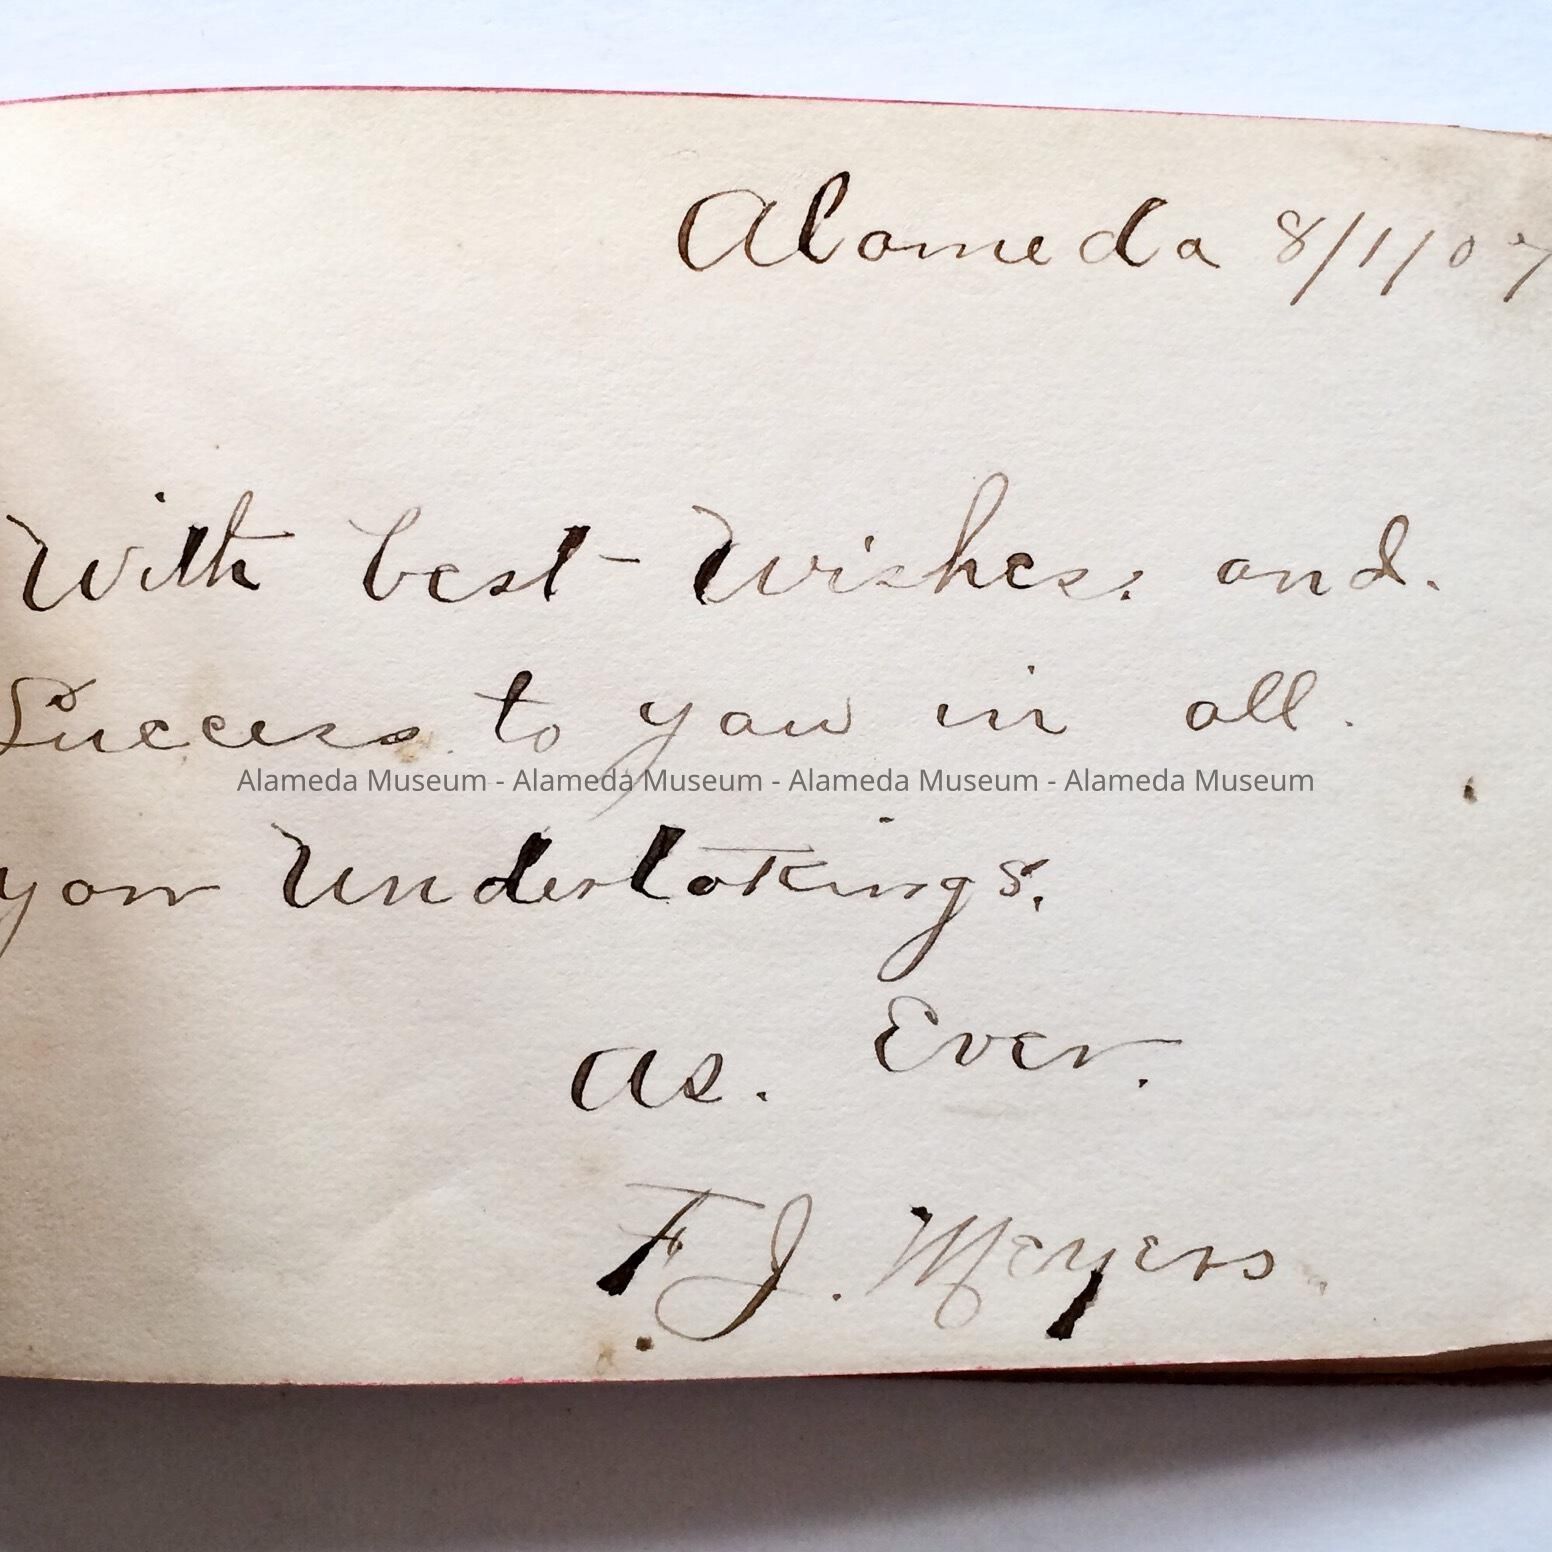 Alameda 8/1/07
With best Wishes. and.
Success to you in all.
Alameda Museum - Alameda Museum - Alameda Museum - Alameda Museum
your Undertakings.
as. Ever.
F J. Meyers.